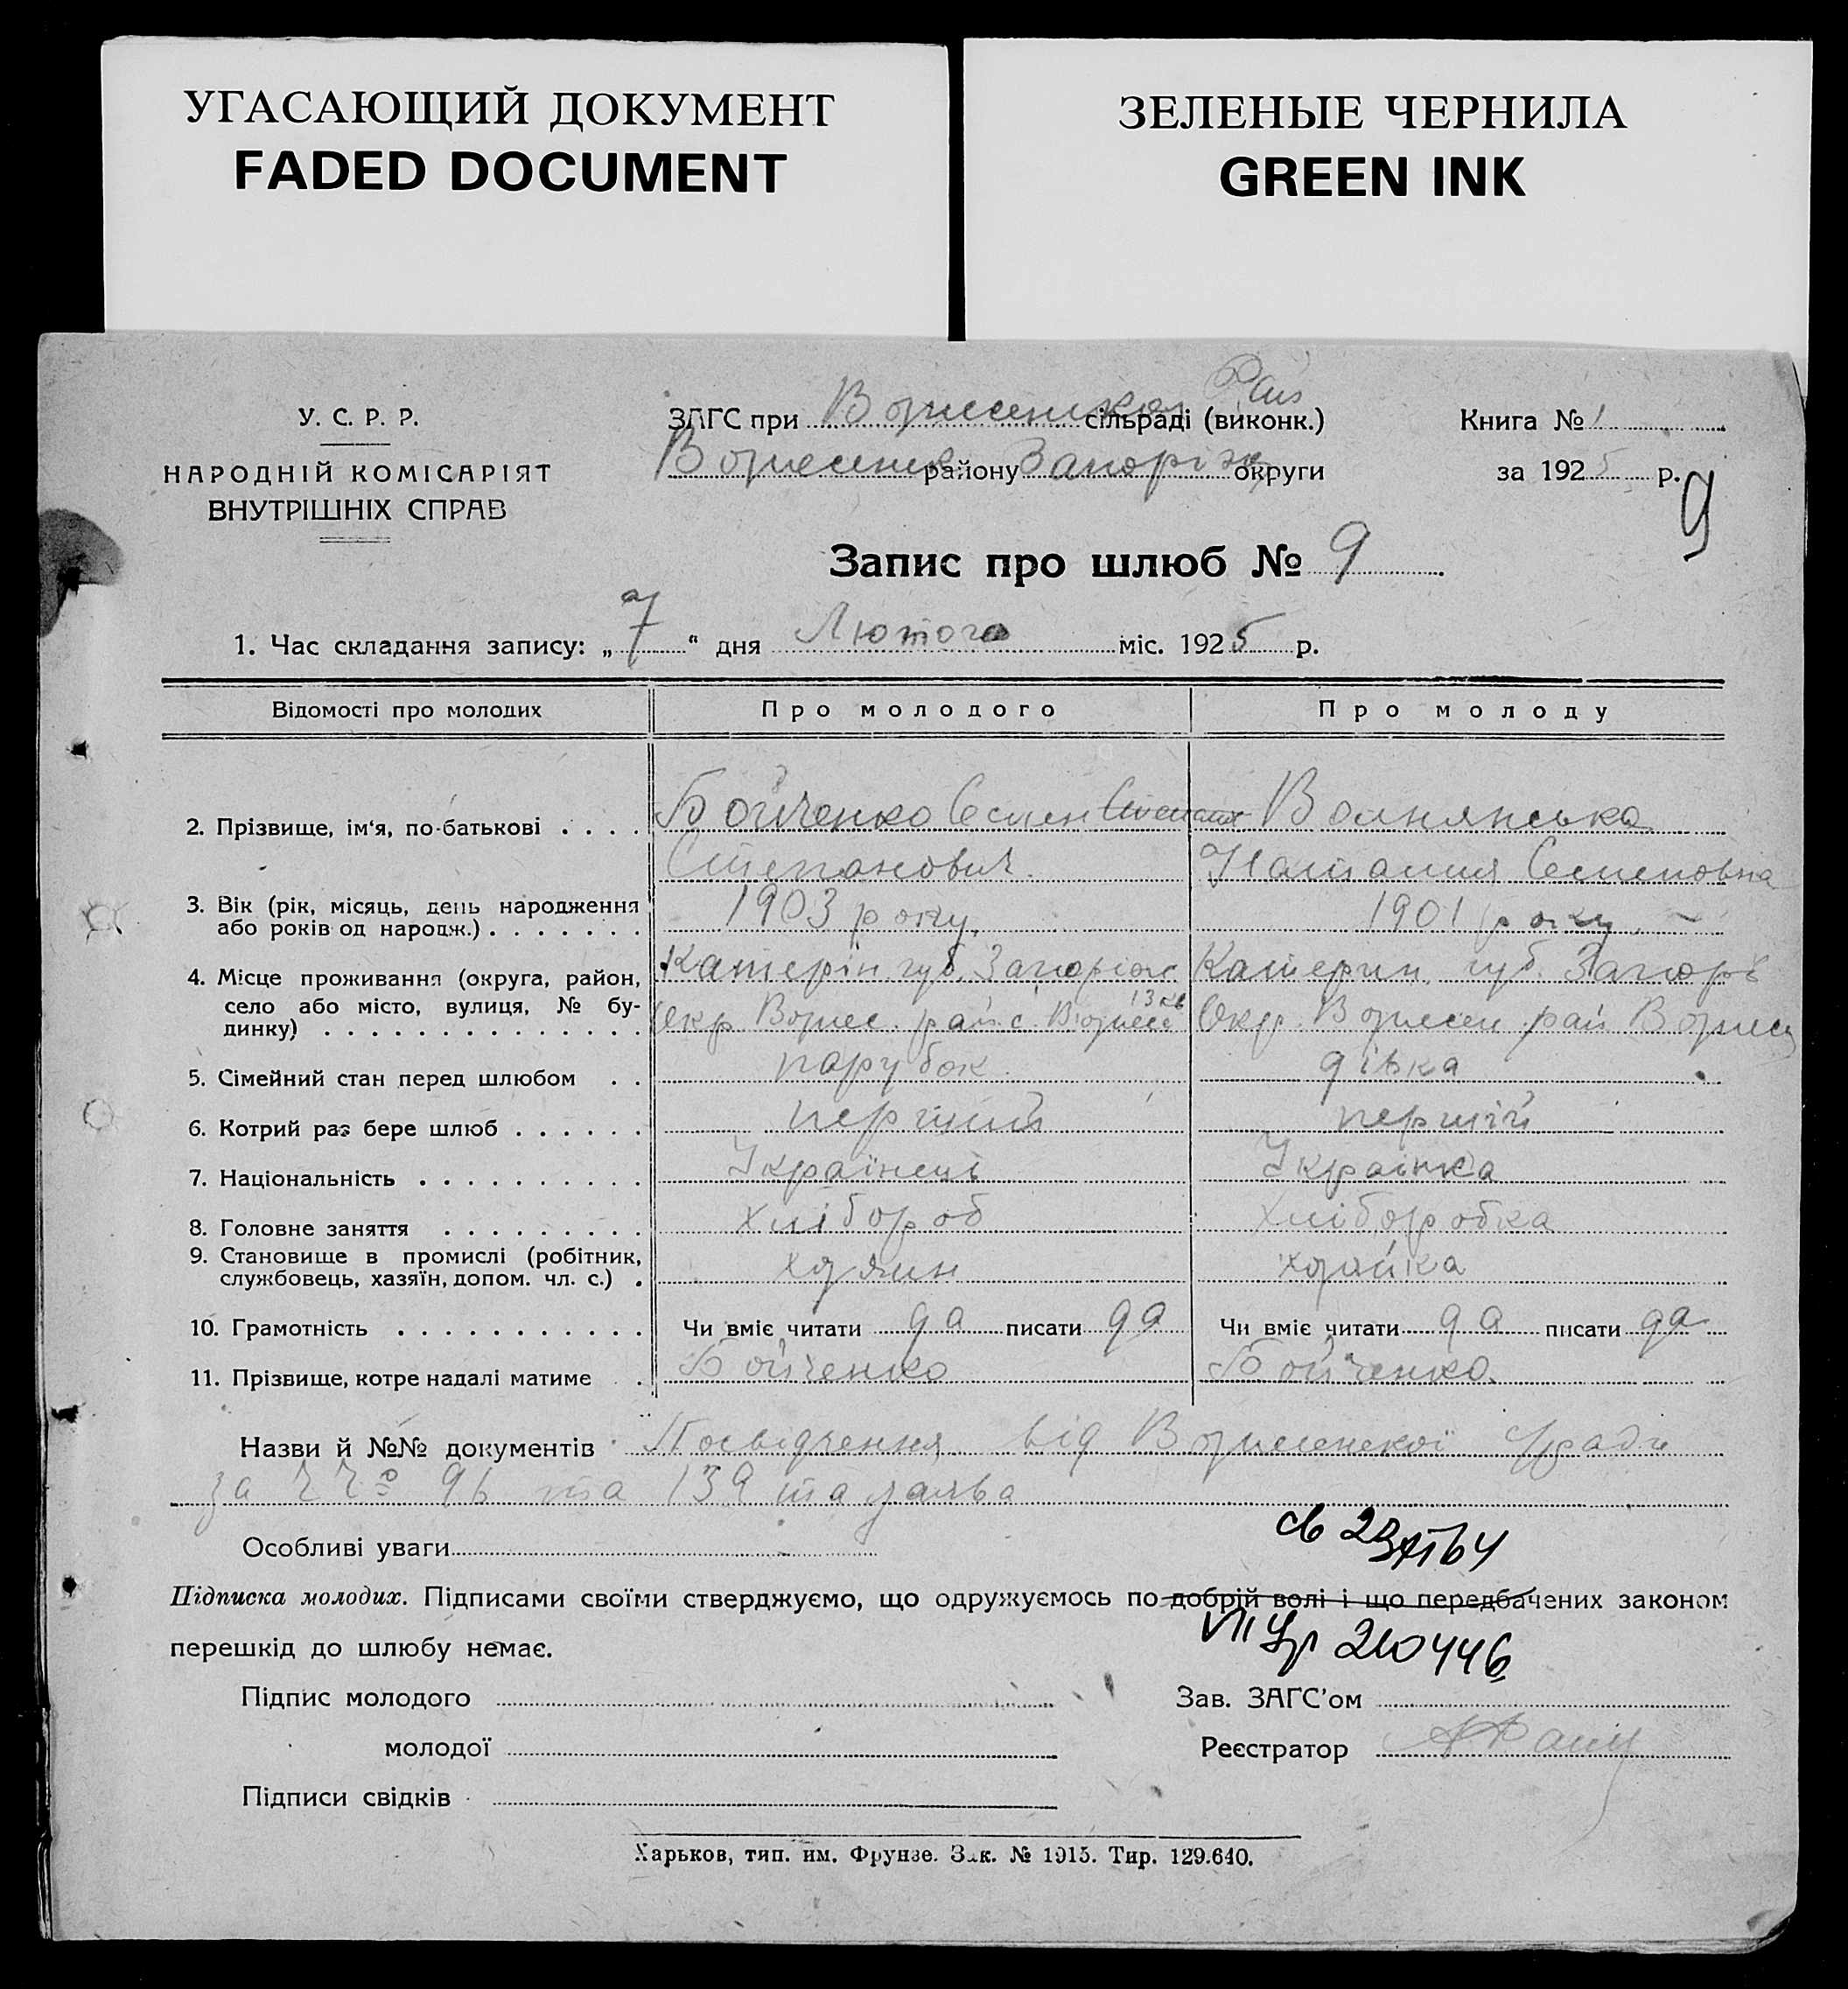 УГАСАЮЩИЙ ДОКУМЕНТ
FADED DOCUMENT
ЗЕЛЕНЫЕ ЧЕРНИЛА
GREEN INK
У. С. Р. Р.
НАРОДНІЙ КОМІСАРІЯТ
ВНУТРІШНІХ СПРАВ
Рай
ЗАГС при Вознесенком сільраді (виконк.)
Вознесенск району Запоріж округи
Книга № 1
за 1925 р.
9
Запис про шлюб № 9
1. Час складання запису: „7“ дня Лютого міс. 1925 р.
Відомості про молодих Про молодого Про молоду
2. Прізвище, ім'я, по-батькові . . . . Бойченко Семен Волнянська
Степанович Наталия Семеновна
3. Вік (рік, місяць, день народження
або років од народж.) . . . . . . . 1903 року. 1901 року
4. Місце проживання (округа, район, Катерін. губ. Запоріж Катерин. губ. Запорі
село або місто, вулиця, № бу-
динку) . . . . . . . . . . . . . . Окр Вознес. рай с. Вознесе Окр. Вознесен рай Вознес
5. Сімейний стан перед шлюбом . . парубок дівка
6. Котрий раз бере шлюб . . . . . . перший першій
7. Національність . . . . . . . . . . Українець Українка
8. Головне заняття . . . . . . . . . хлібороб хліборобка
9. Становище в промислі (робітник,
службовець, хазяїн, допом. чл. с.) . хозяин хозяйка
10. Грамотність . . . . . . . . . . . Чи вміє читати да писати да Чи вміє читати да писати да
11. Прізвище, котре надалі матиме . Бойченко Бойченко
Назви й №№ документів Посвідчення від Вознесенскої С/ради
за 96 та 139 та заява
Особливі уваги
Підписка молодих. Підписами своїми стверджуємо, що одружуємось по добрій волі і що передбачених законом
перешкід до шлюбу немає.
210446
Підпис молодого
Зав. ЗАГС'ом
молодої
Реєстратор
Підписи свідків
Харьков, тип. им. Фрунзе. Зак. № 1915. Тир. 129.640.